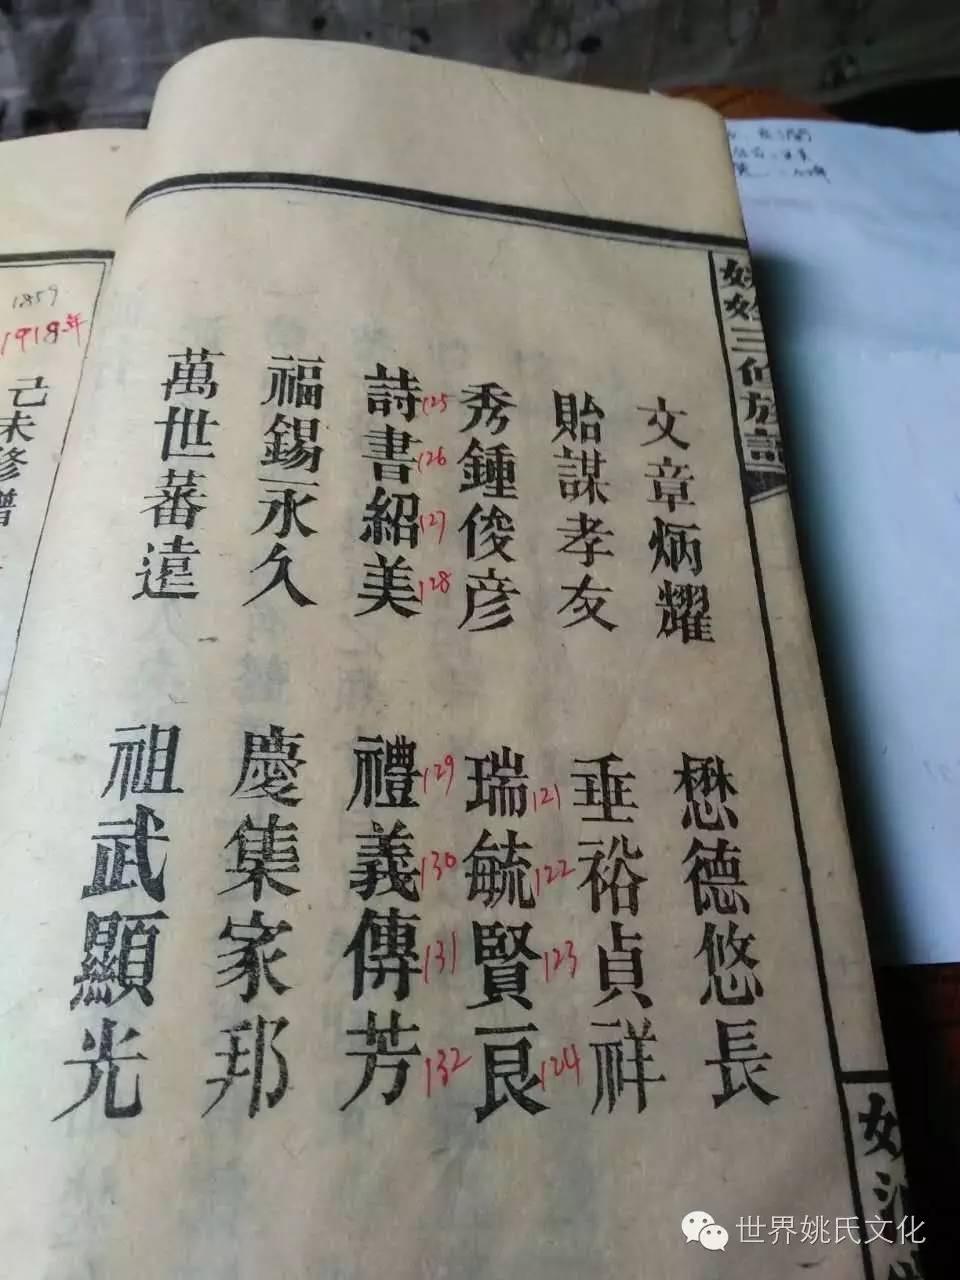 三修族譜
文章炳耀 懋德悠長
貽謀孝友 垂裕貞祥
秀鍾俊彦 瑞毓賢良
121
122
123
124
詩書紹美 禮義傳芳
125
126
127
128
129
130
131
132
福錫永久 慶集家邦
萬世蕃遠 祖武顯光
1859
1918年
己未修譜
世界姚氏文化